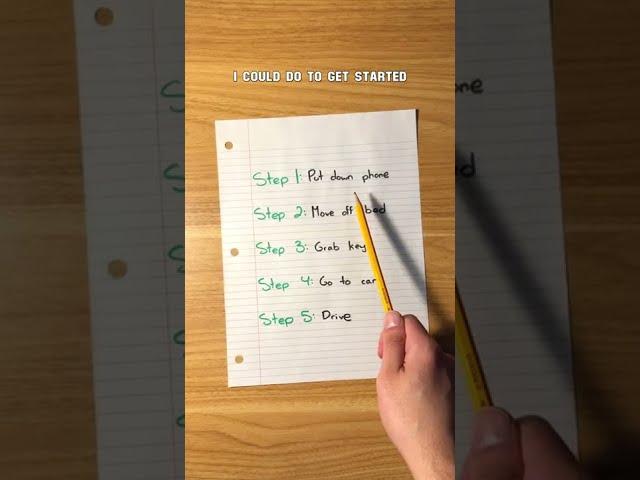 I COULD DO TO GET STARTED
Step 1: Put down phone
Step 2: Move off bed
Step 3: Grab key
Step 4: Go to car
Step 5: Drive